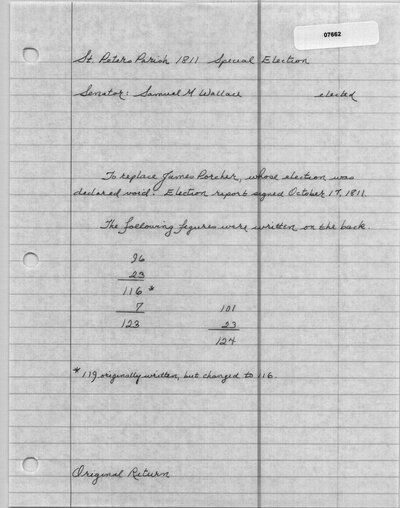 07662
St. Peters Parish 1811 Special Election
Senator: Samuel M Wallace elected
To replace James Porcher, whose election was
declared void. Election report signed October 17, 1811.
The following figures were written on the back.
96
23
116 *
7 101
123 23
124
* 119 originally written, but changed to 116.
Original Return